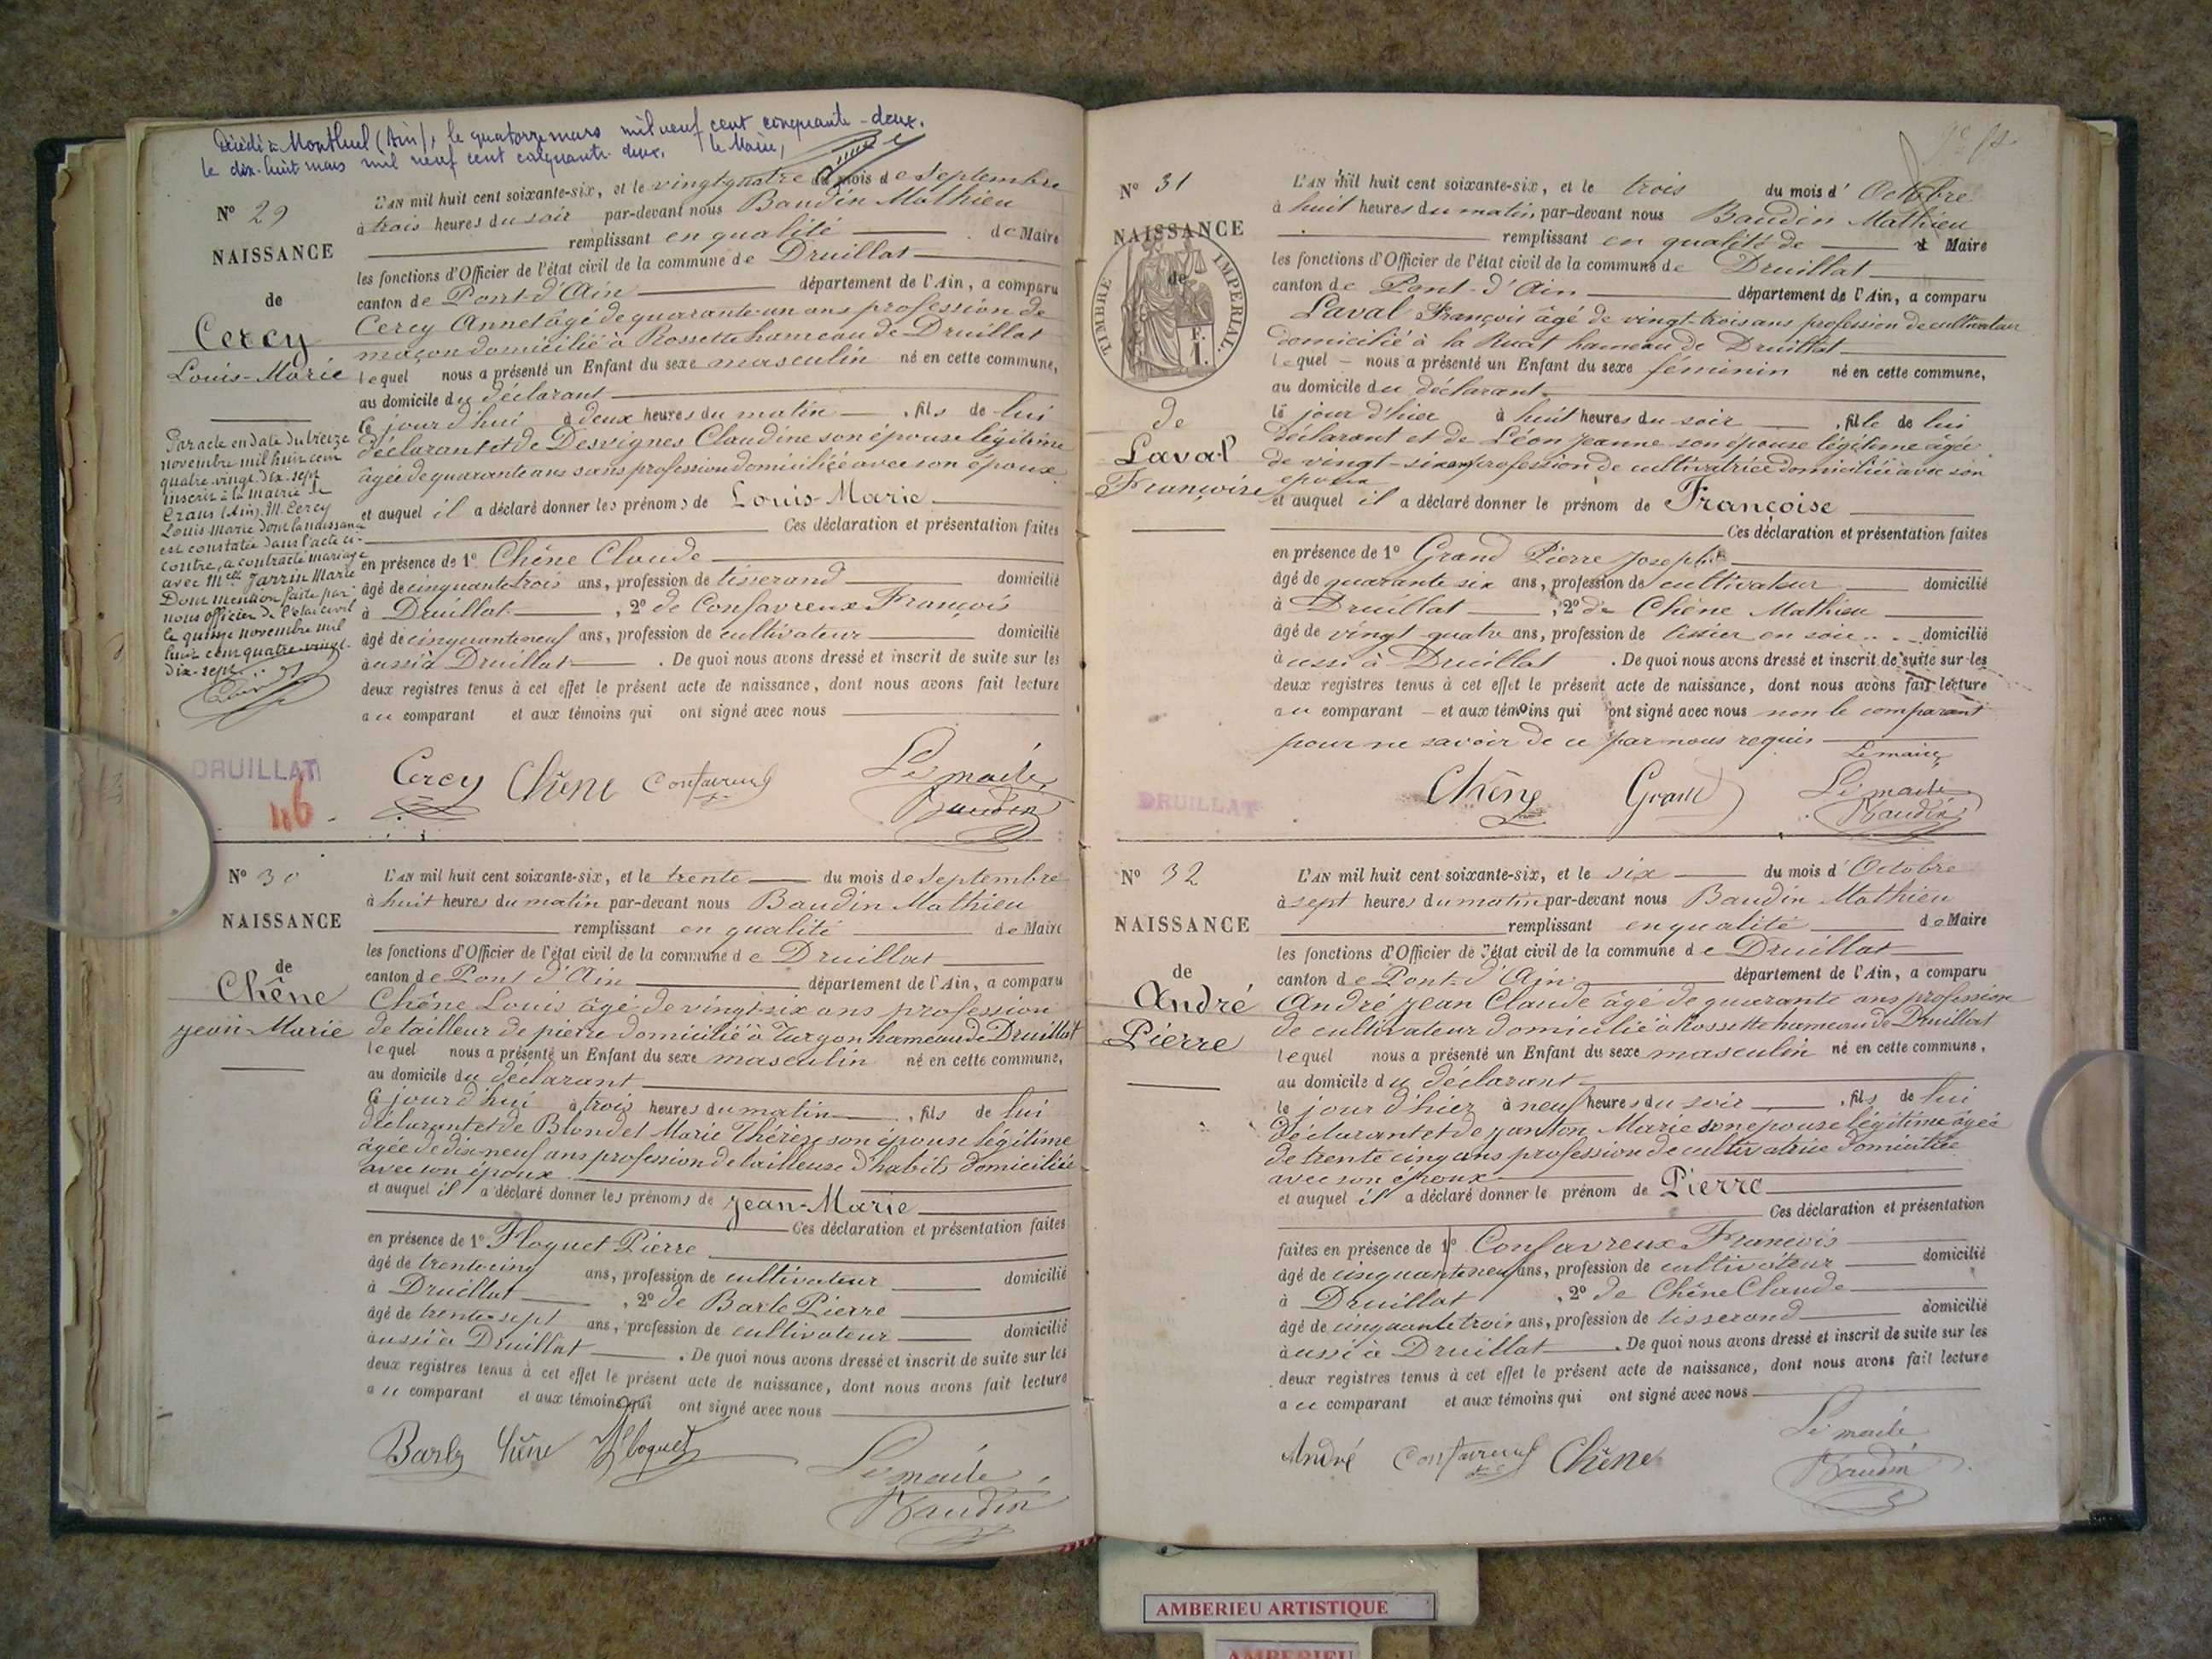 Décédé à Montluel (Ain), le quatorze mars mil neuf cent cinquante-deux.
le dix-huit mars mil neuf cent cinquante deux. le Maire,
N° 29
NAISSANCE
de
Cercy
Louis-Marie
Par acte en date du treize
novembre mil huit cent
quatre-vingt-dix-sept
inscrit à la mairie de
Crans (Ain), M. Cercy
Louis Marie dont la naissance
est constatée dans l'acte ci-
contre, a contracté mariage
avec Melle Jarrin Marie
Dont mention faite par
nous officier de l'état civil
le quinze novembre mil
huit cent quatre-vingt-
dix-sept
DRUILLAT
46
L'AN mil huit cent soixante-six, et le vingt quatre du mois de Septembre
à trois heures du soir par-devant nous Baudin Mathieu
remplissant en qualité de Maire
les fonctions d'Officier de l'état civil de la commune de Druillat
canton de Pont-d'Ain département de l'Ain, a comparu
Cercy Annet âgé de quarante-un ans profession de
maçon domicilié à Rossette hameau de Druillat
lequel nous a présenté un Enfant du sexe masculin né en cette commune,
au domicile du déclarant
ce jour d'hui à deux heures du matin, fils de lui
déclarant et de Desvignes Claudine son épouse légitime
âgée de quarante ans sans profession domiciliée avec son époux
et auquel il a déclaré donner les prénoms de Louis-Marie
Ces déclaration et présentation faites
en présence de 1° Chêne Claude
âgé de cinquante trois ans, profession de tisserand domicilié
à Druillat, 2° de Confavreux François
âgé de cinquante neuf ans, profession de cultivateur domicilié
aussi à Druillat. De quoi nous avons dressé et inscrit de suite sur les
deux registres tenus à cet effet le présent acte de naissance, dont nous avons fait lecture
au comparant et aux témoins qui ont signé avec nous
Cercy Chêne Confavreux Le maire
Baudin
N° 30
NAISSANCE
de
Chêne
Jean-Marie
L'AN mil huit cent soixante-six, et le trente du mois de Septembre
à huit heures du matin par-devant nous Baudin Mathieu
remplissant en qualité de Maire
les fonctions d'Officier de l'état civil de la commune de Druillat
canton de Pont d'Ain département de l'Ain, a comparu
Chêne Louis âgé de vingt-six ans profession
de tailleur de pierre domicilié à Turgon hameau de Druillat
lequel nous a présenté un Enfant du sexe masculin né en cette commune,
au domicile du déclarant
ce jour d'hui à trois heures du matin, fils de lui
déclarant et de Blondel Marie Thérèze son épouse légitime
âgée de dix-neuf ans profession de tailleuse d'habits domiciliée
avec son époux
et auquel il a déclaré donner les prénoms de Jean-Marie
Ces déclaration et présentation faites
en présence de 1° Floquet Pierre
âgé de trente cinq ans, profession de cultivateur domicilié
à Druillat, 2° de Barle Pierre
âgé de trente-sept ans, profession de cultivateur domicilié
aussi à Druillat. De quoi nous avons dressé et inscrit de suite sur les
deux registres tenus à cet effet le présent acte de naissance, dont nous avons fait lecture
au comparant et aux témoins qui ont signé avec nous
Barle Chêne Floquet Le maire
Baudin
N° 31
NAISSANCE
de
TIMBRE IMPERIAL
F. 1.
de
Laval
Françoise
DRUILLAT
L'AN mil huit cent soixante-six, et le trois du mois d'Octobre
à huit heures du matin par-devant nous Baudin Mathieu
remplissant en qualité de Maire
les fonctions d'Officier de l'état civil de la commune de Druillat
canton de Pont-d'Ain département de l'Ain, a comparu
Laval François âgé de vingt-trois ans profession de cultivateur
domicilié à la Ruat hameau de Druillat
lequel nous a présenté un Enfant du sexe féminin né en cette commune,
au domicile du déclarant
le jour d'hier à huit heures du soir, fille de lui
déclarant et de Léon Jeanne son épouse légitime âgée
de vingt-six ans profession de cultivatrice domiciliée avec son
époux
et auquel il a déclaré donner le prénom de Françoise
Ces déclaration et présentation faites
en présence de 1° Grand Pierre Joseph
âgé de quarante six ans, profession de cultivateur domicilié
à Druillat, 2° de Chêne Mathieu
âgé de vingt quatre ans, profession de tissier en soie domicilié
aussi à Druillat. De quoi nous avons dressé et inscrit de suite sur les
deux registres tenus à cet effet le présent acte de naissance, dont nous avons fait lecture
au comparant et aux témoins qui ont signé avec nous non le comparant
pour ne savoir de ce par nous requis
Le maire
Chêne Grand Le maire
Baudin
N° 32
NAISSANCE
de
André
Pierre
L'AN mil huit cent soixante-six, et le six du mois d'Octobre
à sept heures du matin par-devant nous Baudin Mathieu
remplissant en qualité de Maire
les fonctions d'Officier de l'état civil de la commune de Druillat
canton de Pont-d'Ain département de l'Ain, a comparu
André Jean Claude âgé de quarante ans profession
de cultivateur domicilié à Rossette hameau de Druillat
lequel nous a présenté un Enfant du sexe masculin né en cette commune,
au domicile du déclarant
le jour d'hier à neuf heures du soir, fils de lui
déclarant et de Janton Marie son épouse légitime âgée
de trente cinq ans profession de cultivatrice domiciliée
avec son époux
et auquel il a déclaré donner le prénom de Pierre
Ces déclaration et présentation
faites en présence de 1° Confavreux François
âgé de cinquante neuf ans, profession de cultivateur domicilié
à Druillat, 2° de Chêne Claude
âgé de cinquante trois ans, profession de tisserand domicilié
aussi à Druillat. De quoi nous avons dressé et inscrit de suite sur les
deux registres tenus à cet effet le présent acte de naissance, dont nous avons fait lecture
au comparant et aux témoins qui ont signé avec nous
André Confavreux Chêne Le maire
Baudin
AMBERIEU ARTISTIQUE
AMBERIEU